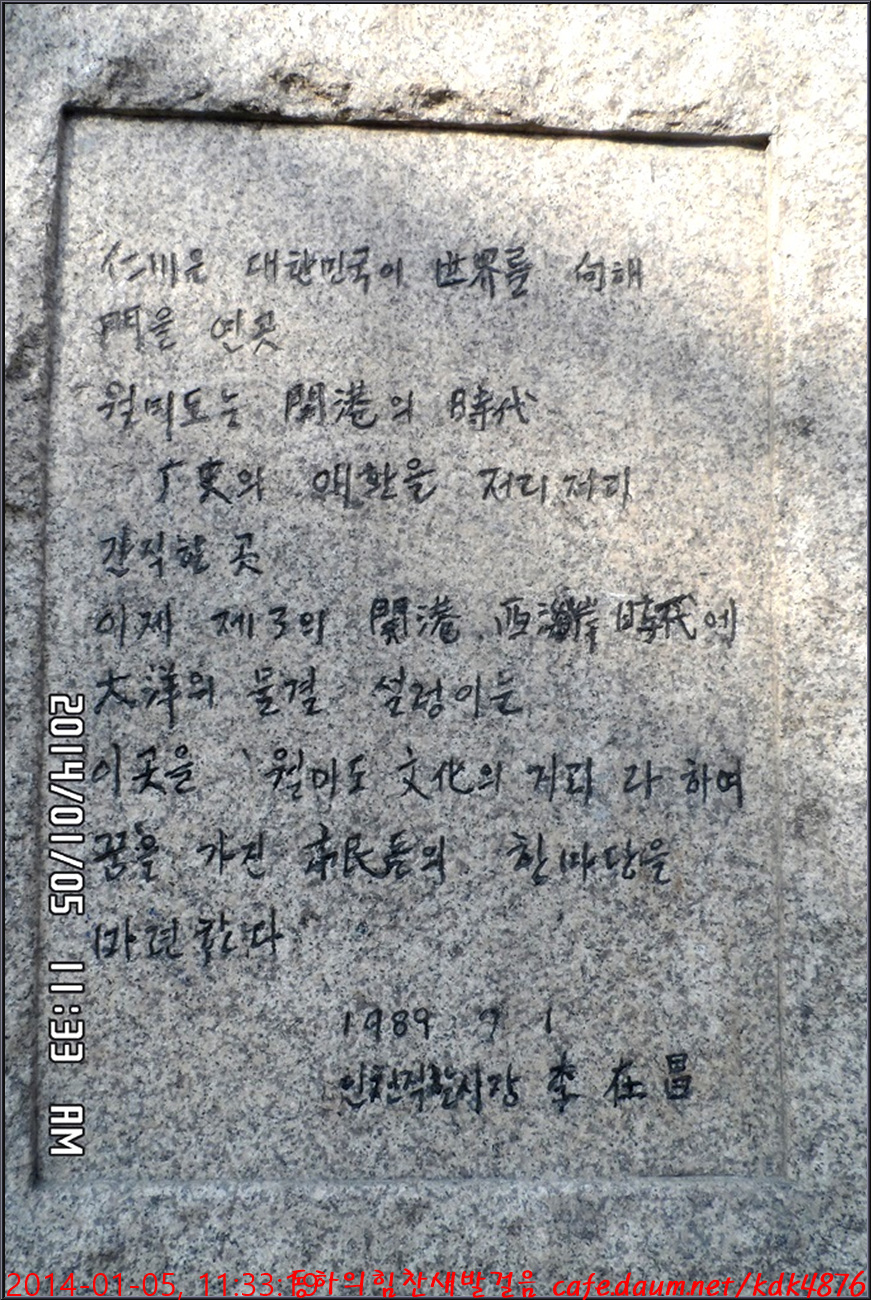 仁川은 대한민국이 世界를 向해
門을 연곳
월미도는 開港의 時代
史의 애환을 저리저리
간직한 곳
이제 제3의 開港 西海岸時代에
大洋의 물결 설렁이는
이곳을 월미도 文化의 거리 라 하여
꿈을 가진 市民들의 한마당을
마련한다
1989 9 1
인천직할시장 李在昌
2014/01/05 11:33 AM
2014-01-05, 11:33:19
동하의힘찬새발걸음 cafe.daum.net/kdk4876